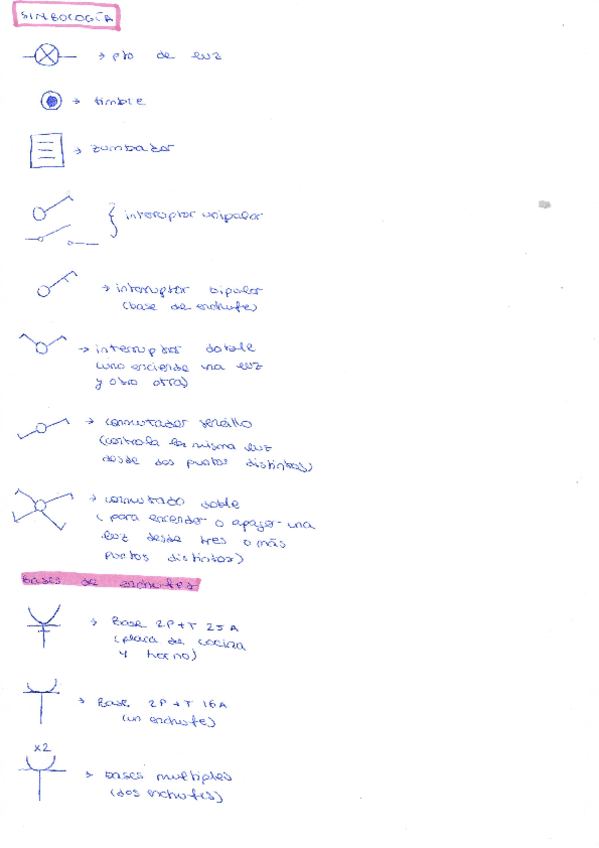 SIMBOLOGÍA
→ pto de luz
→ timbre
→ zumbador
interruptor unipolar
→ interruptor bipolar
(base de enchufe)
→ interruptor doble
(uno enciende una luz
y otro otra)
→ conmutador sencillo
(controla la misma luz
desde dos puntos distintos)
→ conmutado doble
(para encender o apagar una
luz desde tres o más
puntos distintos)
bases de enchufes
→ Base 2P+T 25A
(placa de cocina
y horno)
→ Base 2P+T 16A
(un enchufe)
x2
→ bases multiples
(dos enchufes)